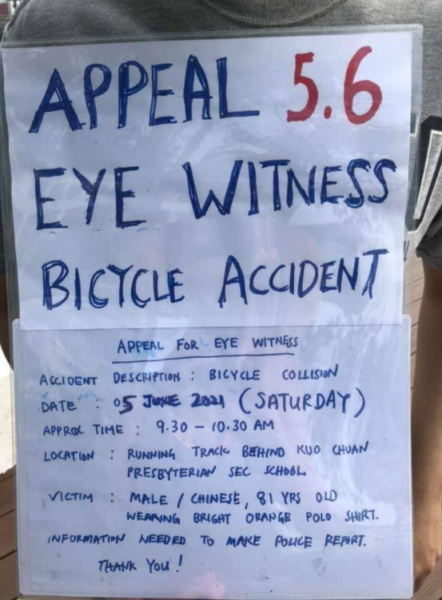 APPEAL 5.6
EYE WITNESS
BICYCLE ACCIDENT
APPEAL FOR EYE WITNESS
ACCIDENT DESCRIPTION : BICYCLE COLLISION
DATE : 05 JUNE 2021 (SATURDAY)
APPROX TIME : 9.30 - 10.30 AM
LOCATION : RUNNING TRACK BEHIND KUO CHUAN
PRESBYTERIAN SEC SCHOOL
VICTIM : MALE / CHINESE, 81 YRS OLD
WEARING BRIGHT ORANGE POLO SHIRT.
INFORMATION NEEDED TO MAKE POLICE REPORT.
THANK YOU!